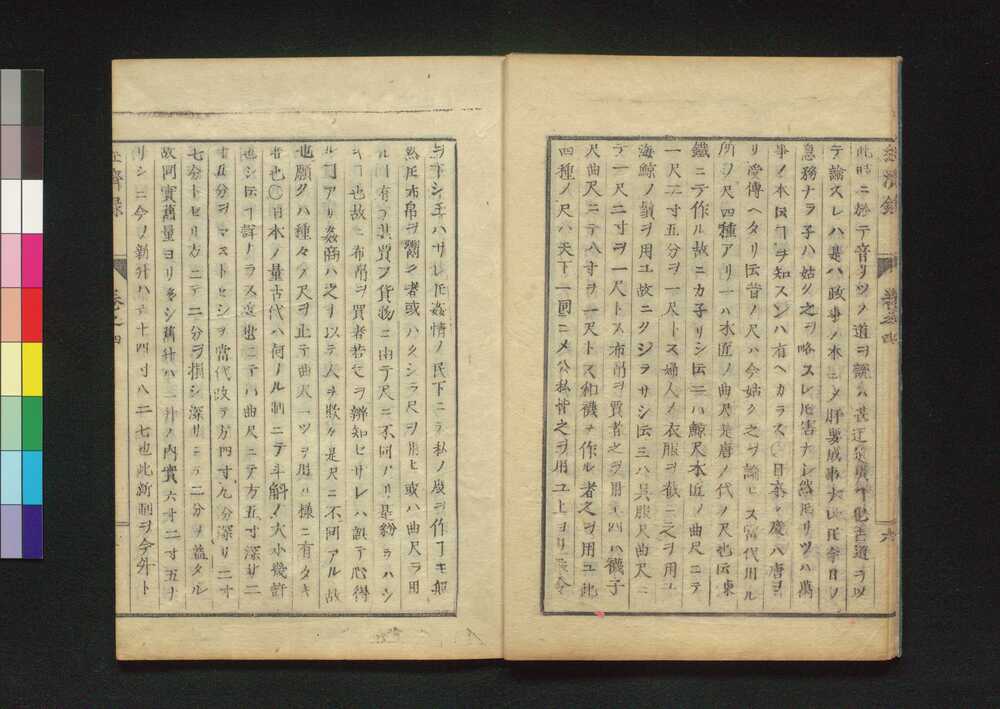 經濟録
巻之四
六
此時ニ於テ音リツノ道ヲ論ハ甚迂遠
テ論スレハ是ハ政事ノ本ニメ肝要成事
急務ナラ子ハ姑ク之ヲ略スレ𪜈害ナシ然𪜈リツハ萬
事ノ本ヿヲ知スンハ有ヘカラス〇日本ノ度ハ唐ヨ
リ受傳ヘタリ伝昔ノ尺ハ今姑ク之ヲ論セス當代用ル
所ノ尺四種アリ一ハ木匠ノ曲尺是唐ノ代ノ尺也
鐵ニテ作ル故ニカ子リシ伝二ハ鯨尺木匠ノ曲尺ニテ
一尺二寸五分ヲ一尺トス婦人ノ衣服ヲ裁ニ之ヲ用ユ
海鯨ノ鬚ヲ用ユ故ニクジラサシ伝三ハ呉服尺曲尺ニ
テ一尺二寸ヲ一尺トス布帛ヲ買者之ヲ用ユ四ハ襪子
尺曲尺ニテ八寸ヲ一尺トス和襪ヲ作ル者之ヲ用ユ此
四種ノ尺ハ天下一同ニメ公私皆之ヲ用ユ上ヨリ
シ玉ハサレ𪜈姦情ノ民下ニテ私ノ度ヲ作
然𪜈布帛ヲ鬻ク者或ハクシラ尺ヲ用ヒ或ハ曲尺ヲ用
ル有其買フ貨物ニ由テ尺ニ不同アリ是紛ラハシ
キヿ也故ニ布帛ヲ買者若之ヲ辨知セサレハ誤テ心得
ルヿアリ姦商ハ之ヲ以テ人ヲ欺ク是尺ニ不同アル故
也願クハ種々ノ尺ヲ止テ曲尺一ツヲ用ル様ニ有タキ
者也〇日本ノ量古代ハ何ノル制ニテ斗斛ノ大小幾許
シ伝ヿ詳ノラス京也ニテハ曲尺ニテ方五寸深サ二
寸五分ヲマストセシヲ當代改テ方四寸九分深リ二寸
七分トセリ方ニテ二分ヲ損シ深リニテ二分ヲ益タル
故同實舊量ヨリ多シ舊升ハ一升ノ内實六寸二寸五
リシニ今ノ新升ハ六十四寸八二七也此新制ヲ今外ト
經濟録
巻之四